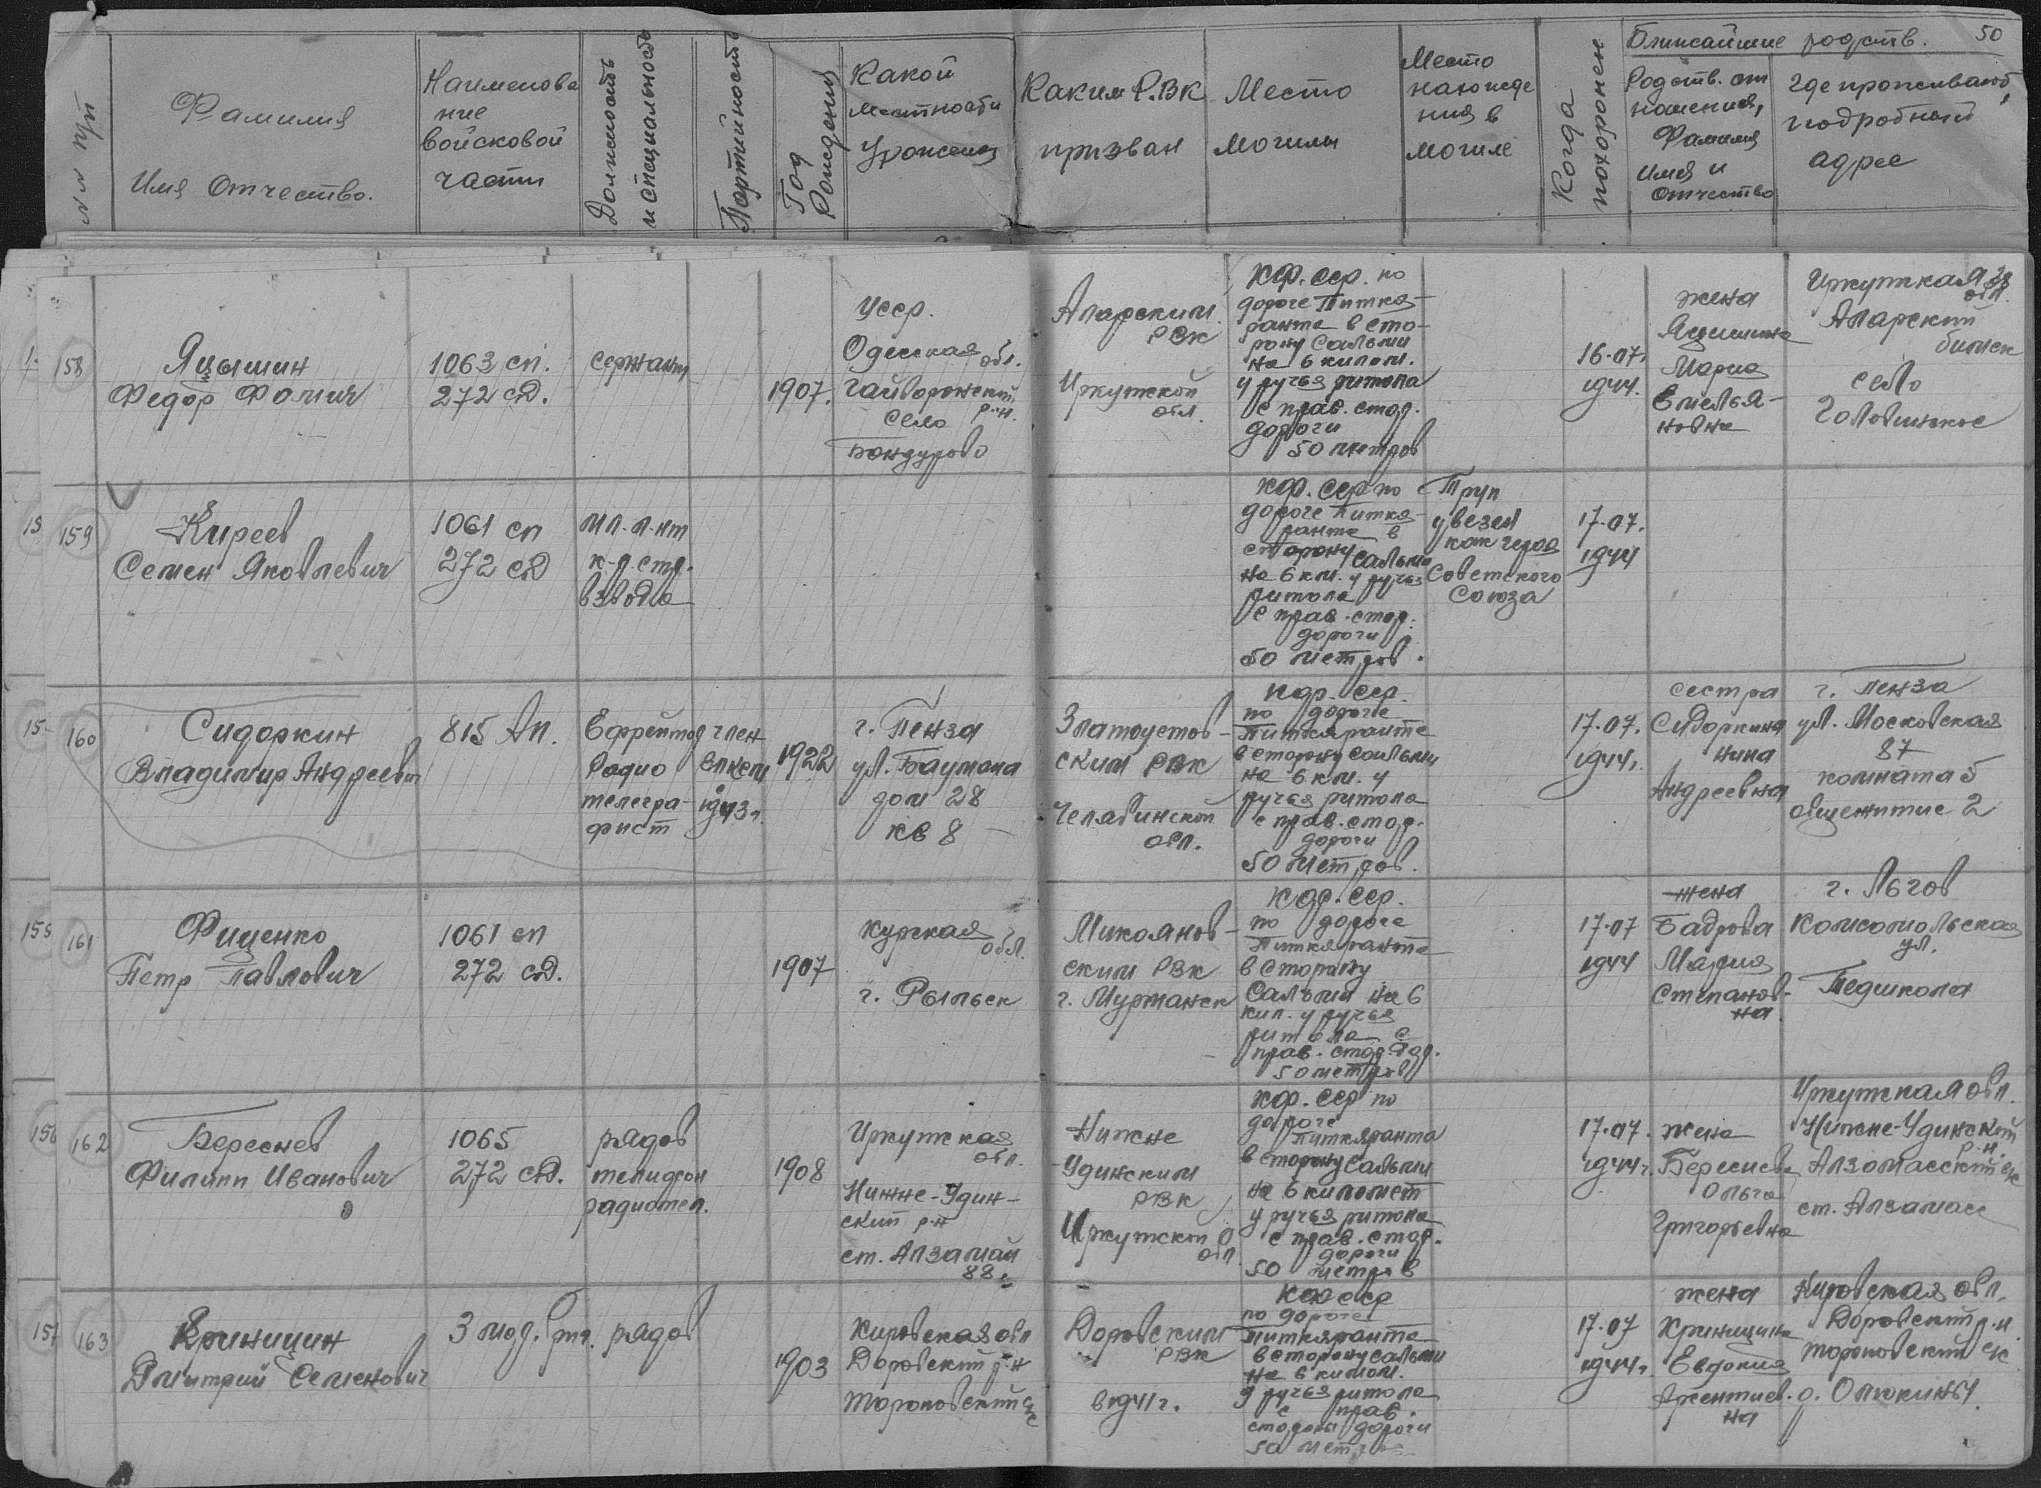 50
№№ п/п
Фамилия
Имя Отчество.
Наименова
ние
войсковой
части
Должность
и специальность
Партийность
Год
Рождения
Какой
местности
Уроженец
Каким Р.ВК
призван
Место
могилы
Место
нахожде
ния в
могиле
Когда
похоронен
Ближайшие родств.
Родств. от
ношения,
Фамилия
Имя и
Отчество
Где проживают,
подробный
адрес
158
Яцышин
Федор Фомич
1063 сп.
272 сД.
сержант
1907.
Усср.
Одесская обл.
Гайворонский
р-н.
село
Бондурово
Аларским
РВК
Иркутской
обл.
Кф. сср. по
дороге Питкя-
ранта в сто-
рону Сальми
на 6 килом.
у ручья ритола
с прав. стор.
дороги
50 метров
16.07.
1944.
жена
Яцишина
Мария
Емелья-
новна
Иркуткая обл.
Аларский
село
159
Киреев
Семен Яковлевич
1061 сп
272 сД
мл. л-нт
к-р. стр.
взвода
Кф. сср по
дороге Питкя-
ранта в
сторону Сальми
на 6 км. у ручья
ритола
с прав. стор.
дороги
50 метров.
Труп
увезен
как героя
Советского
Союза
17.07.
1944
160
Сидоркин
Владимир Андреевич
815 Ап.
Ефрейтор
Радио
телегра-
фист
член
влксм
1943г.
1922
г. Пенза
ул. Баумана
дом 28
кв 8
Златоустов-
ским РВК
Челябинской
обл.
Кфр. сср.
по дороге
Питкяранта
в сторону Сальми
на 6 км. у
ручья ритола
с прав. стор.
дороги
50 метров.
17.07.
1944.
сестра
Сидоркина
Нина
Андреевна
г. Пенза
ул. Московская
87
комната 5
общежитие 2
161
Фиценко
Петр Павлович
1061 сп
272 сД.
1907
Курская
обл.
г. Рыльск
Микоянов-
ским РВК
г. Мурманск
Кфр. сср.
по дороге
Питкяранта
в сторону
Сальми на 6
кил. у ручья
ритола с
прав. стор дор.
50 метров
17.07
1944
жена
Бадрова
Мария
Степанов-
на
г. Льгов
Комсомольская
ул.
Педшкола
162
Береснев
Филипп Иванович
1065
272 сД.
рядов
телифон
радиотел.
1908
Иркутская
обл.
Нижне-Удин-
ский р-н
ст. Алзамай
88.
Нижне
Удинским
РВК
Иркутской
обл
Кф. сср по
дороге
Питкяранта
в сторону Сальми
на 6 километ
у ручья ритола
с прав. стор.
дороги
50 метров
17.07.
1944г.
жена
Береснева
Ольга
Григорьевна
Иркуткая обл.
Нижне-Удинский
р-н.
ст. Алзамай
163
Криницин
Дмитрий Семенович
рядов
1903
Кировская обл
Доровский р-н
Тороповский с/с
Доровским
РВК
в 1941г.
Кф сср
по дороге
Питкяранта
в сторону Сальми
на 6 килом.
у ручья ритола
с прав.
стороны дороги
50 метр
17.07
1944г.
жена
Криницина
Евдокия
на
Кировская обл.
Доровский р-н.
Тороповский с/с